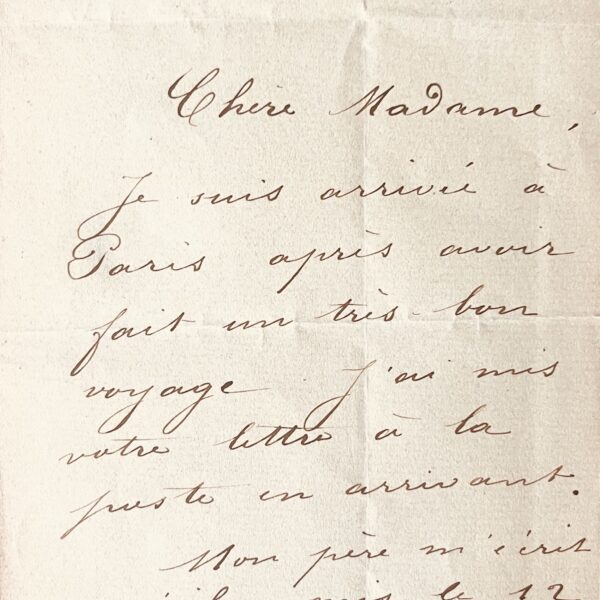 Chère Madame,
Je suis arrivée à
Paris après avoir
fait un très bon
voyage J'ai mis
votre lettre à la
poste en arrivant.
Mon père m'écrit
mis le 12